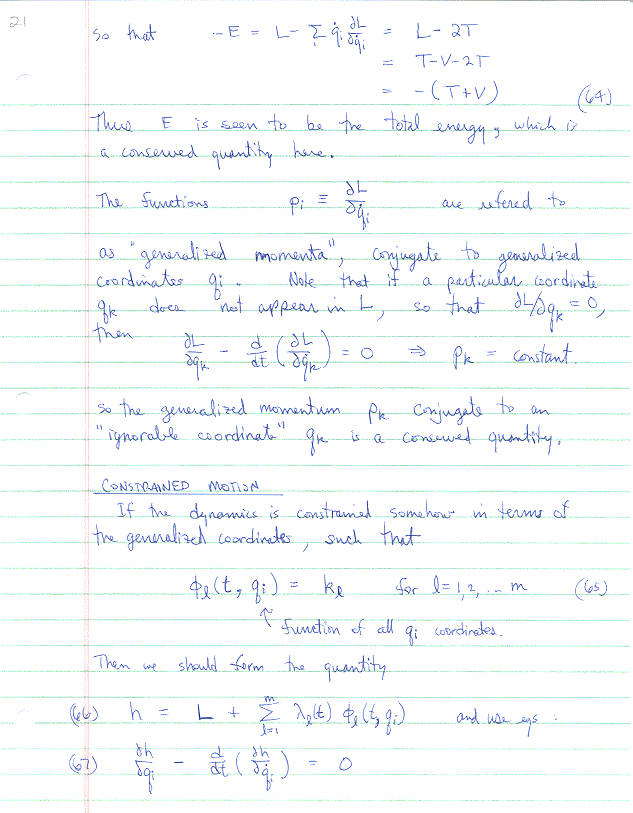 21
so that -E = L - Σ q̇ᵢ ∂L/∂q̇ᵢ = L - 2T
= T-V-2T
= -(T+V) (64)
Thus E is seen to be the total energy, which is
a conserved quantity here.
The functions pᵢ ≡ ∂L/∂q̇ᵢ are refered to
as "generalized momenta", conjugate to generalized
coordinates qᵢ. Note that if a particular coordinate
qₖ does not appear in L, so that ∂L/∂qₖ = 0,
then
∂L/∂qₖ - d/dt (∂L/∂q̇ₖ) = 0 ⇒ pₖ = constant.
so the generalized momentum pₖ conjugate to an
"ignorable coordinate" qₖ is a conserved quantity.
CONSTRAINED MOTION
If the dynamics is constrained somehow in terms of
the generalized coordinates, such that
φₗ(t, qᵢ) = kₗ for l = 1, 2, ... m (65)
↑ function of all qᵢ coordinates.
Then we should form the quantity
(66) h = L + Σₗ₌₁ᵐ λₗ(t) φₗ(t, qᵢ) and use eqs :
(67) ∂h/∂qᵢ - d/dt (∂h/∂q̇ᵢ) = 0